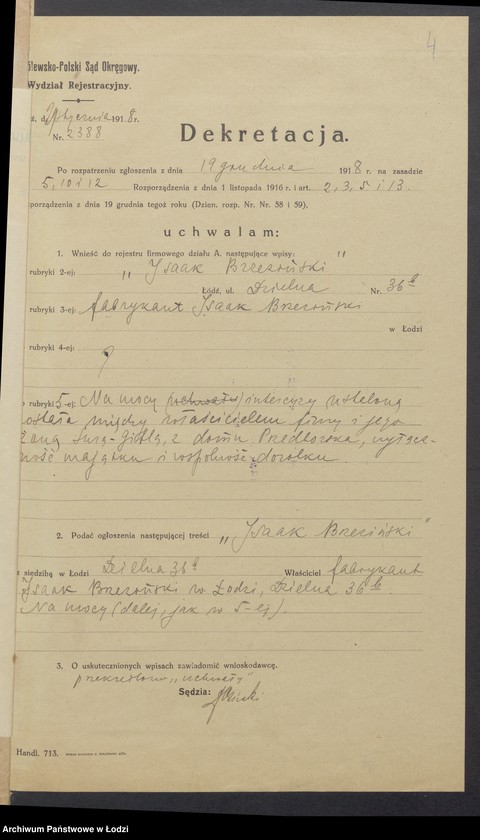 4
ólewsko-Polski Sąd Okręgowy.
Wydział Rejestracyjny.
ź, d. stycznia 1918 r.
Nr. 2388
Dekretacja.
Po rozpatrzeniu zgłoszenia z dnia 19 grudnia 1918 r. na zasadzie
5, 10 i 12 Rozporządzenia z dnia 1 listopada 1916 r. i art. 2, 3, 5 i 13.
porządzenia z dnia 19 grudnia tegoż roku (Dzien. rozp. Nr. Nr. 58 i 59).
uchwalam:
1. Wnieść do rejestru firmowego działu A. następujące wpisy:
rubryki 2-ej: „Isaak Brzeziński"
Łódź, ul. Dzielna Nr. 36a
rubryki 3-ej: fabrykant Isaak Brzeziński
w Łodzi
rubryki 4-ej:
rubryki 5-ej: Na mocy (uchwały) intercyzy ustaloną
ostała między właścicielem firmy i jego
żoną Surą-Gitlą, z domu wyłącz-
ność majątku i wspólność dorobku
2. Podać ogłoszenia następującej treści „Isaak Brzeziński"
z siedzibą w Łodzi Dzielna 36a Właściciel fabrykant
Isaak Brzeziński w Łodzi, Dzielna 36a
Na mocy (dalej, jak w 5-ej).
3. O uskutecznionych wpisach zawiadomić wnioskodawcę.
przekreślono „uchwały"
Sędzia:
Handl. 713.
Archiwum Państwowe w Łodzi